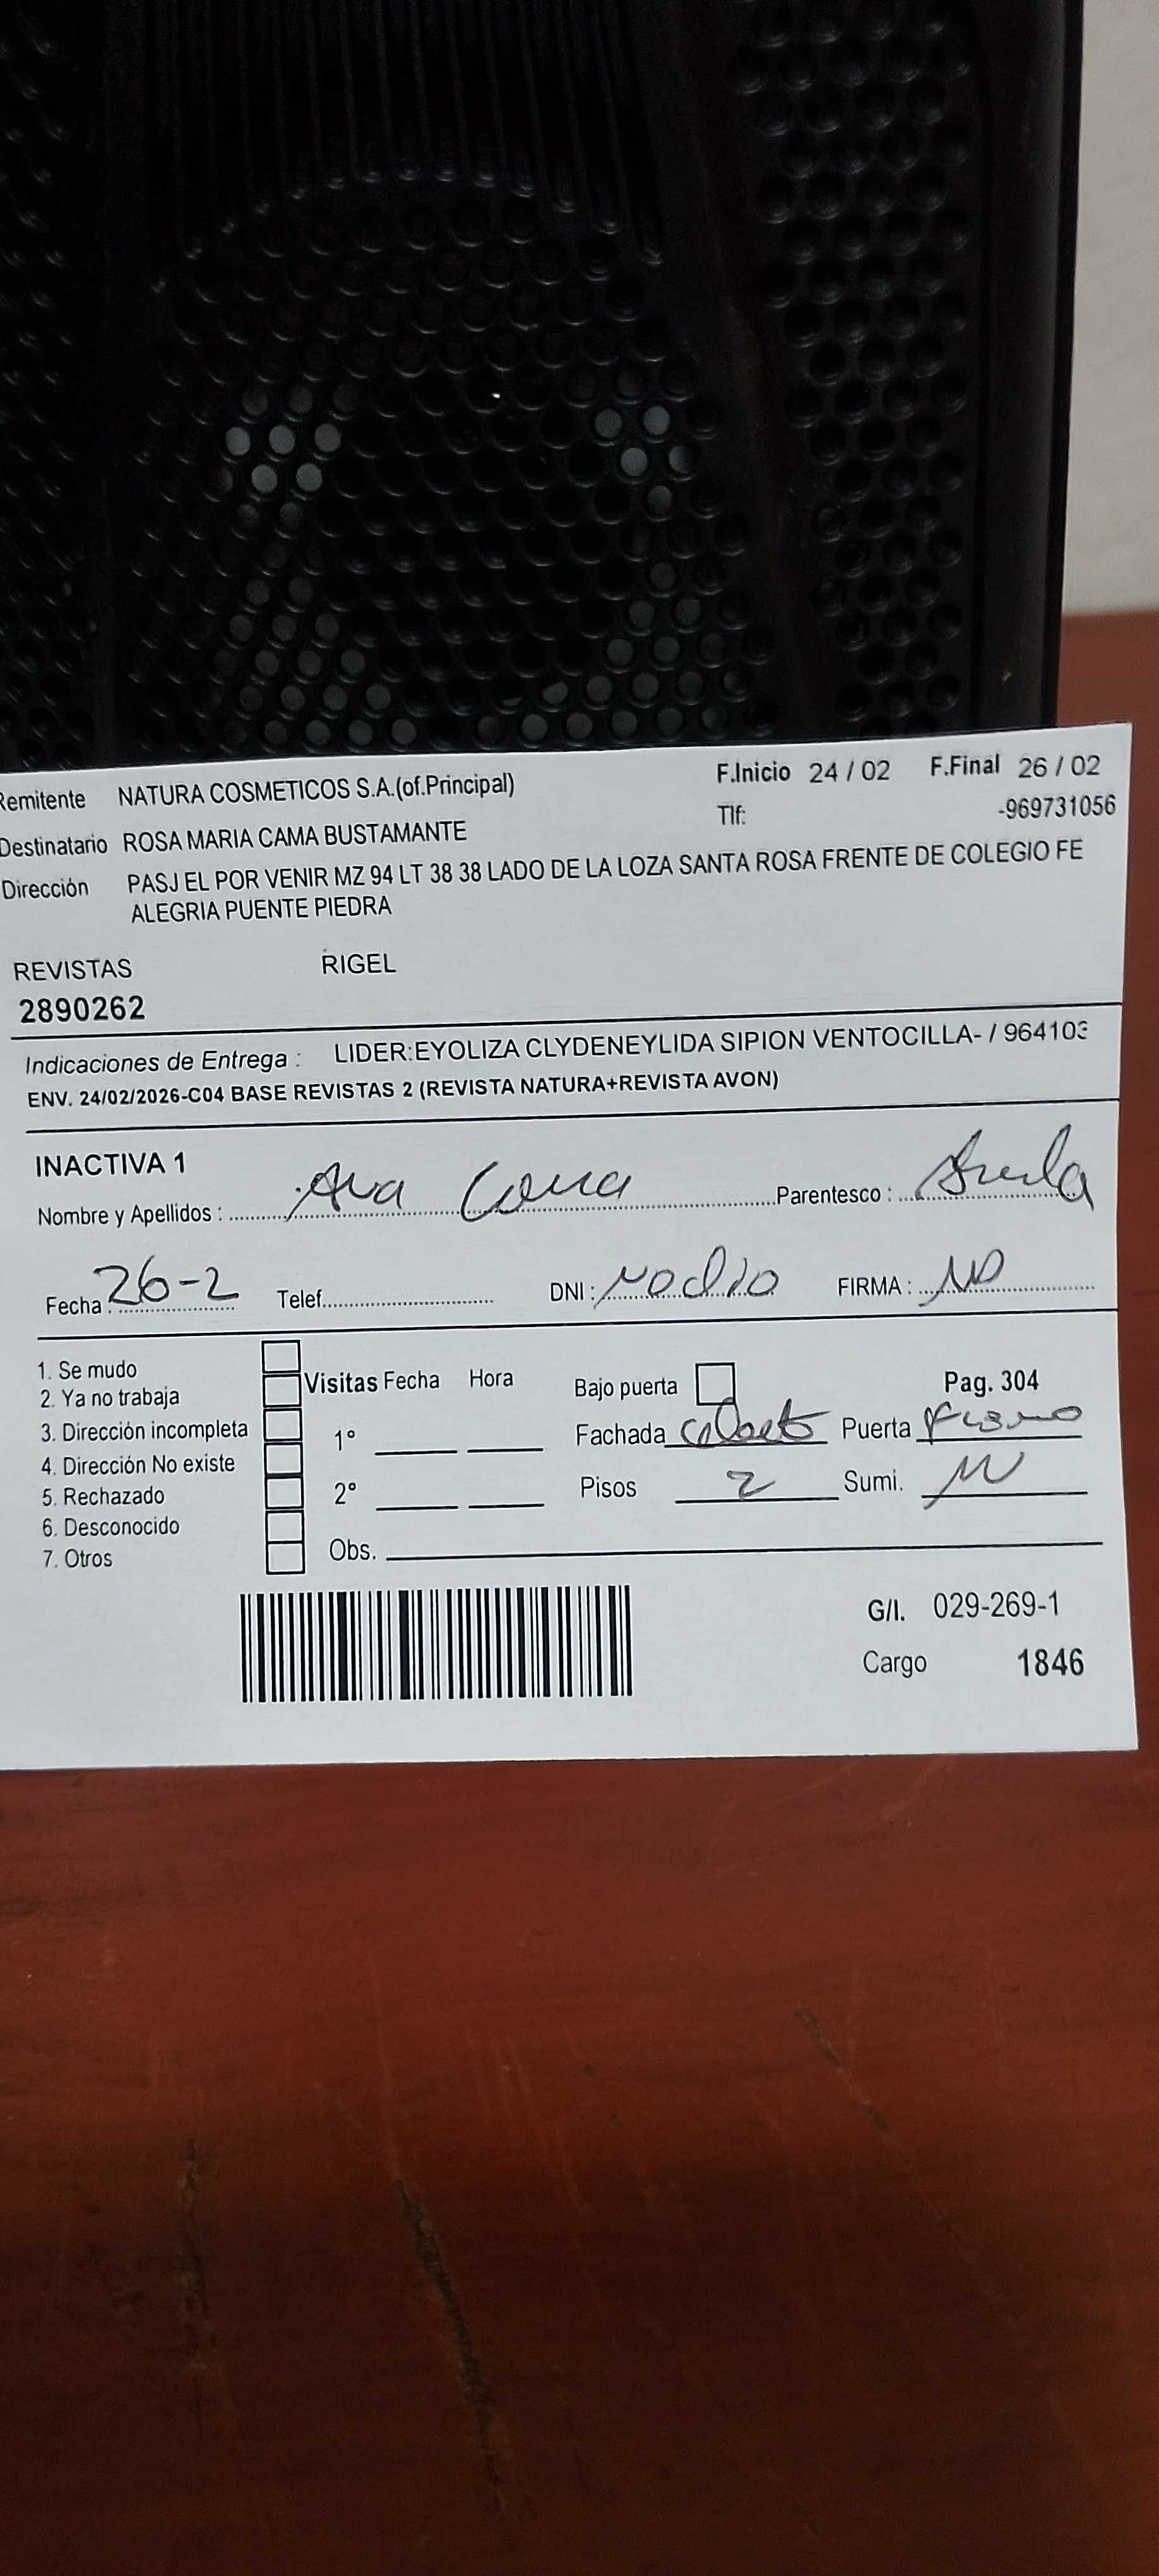 Remitente NATURA COSMETICOS S.A.(of.Principal) F.Inicio 24 / 02 F.Final 26 / 02
Tlf: -969731056
Destinatario ROSA MARIA CAMA BUSTAMANTE
Dirección PASJ EL POR VENIR MZ 94 LT 38 38 LADO DE LA LOZA SANTA ROSA FRENTE DE COLEGIO FE
ALEGRIA PUENTE PIEDRA
REVISTAS RIGEL
2890262
Indicaciones de Entrega : LIDER:EYOLIZA CLYDENEYLIDA SIPION VENTOCILLA- / 964103
ENV. 24/02/2026-C04 BASE REVISTAS 2 (REVISTA NATURA+REVISTA AVON)
INACTIVA 1
Nombre y Apellidos : Ana Cama Parentesco :
Fecha : 26-2 Telef. DNI : no dio FIRMA : NO
1. Se mudo
2. Ya no trabaja
3. Dirección incompleta
4. Dirección No existe
5. Rechazado
6. Desconocido
7. Otros
Visitas Fecha Hora
1°
2°
Obs.
Bajo puerta Pag. 304
Fachada Puerta
Pisos 2 Sumi.
G/I. 029-269-1
Cargo 1846